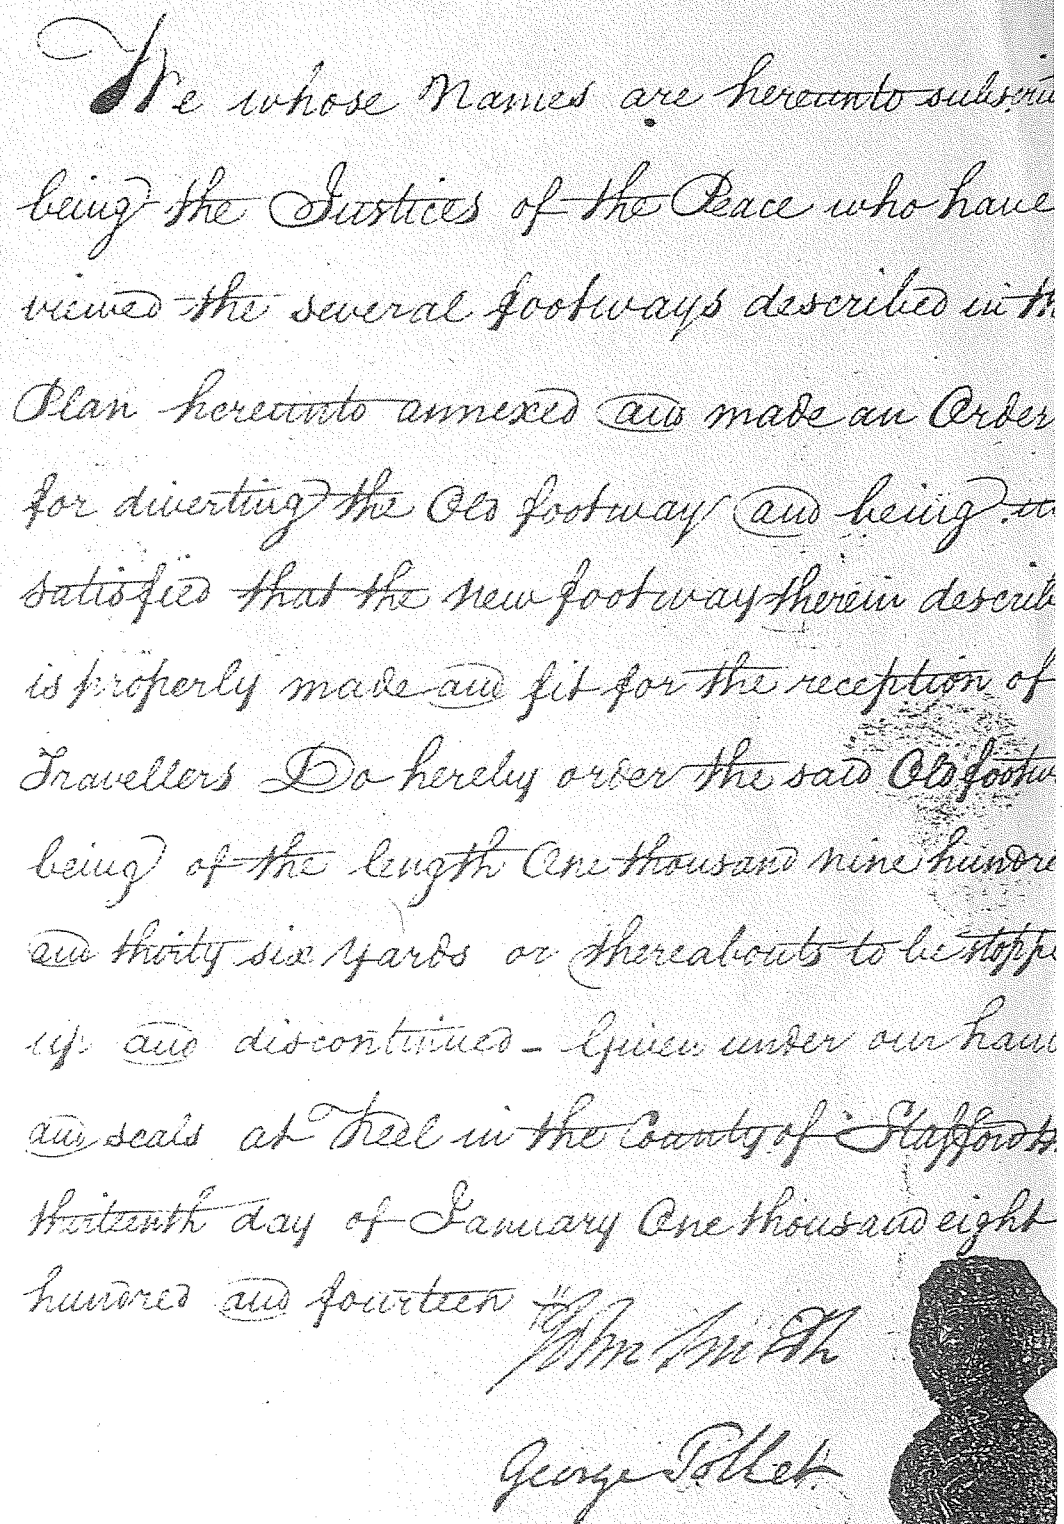 We whose Names are hereunto subscri
being the Justices of the Peace who have
viewed the several footways described in th
Plan hereunto annexed and made an Order
for diverting the Old footway and being
satisfied that the new footway therein describ
is properly made and fit for the reception of
Travellers Do hereby order the said Old footw
being of the length One thousand nine hundre
and thirty six yards or thereabouts to be stoppe
up and discontinued - Given under our hand
and seals at Keel in the County of Stafford
thirteenth day of January One thousand eight
hundred and fourteen
John Smith
George Tollet